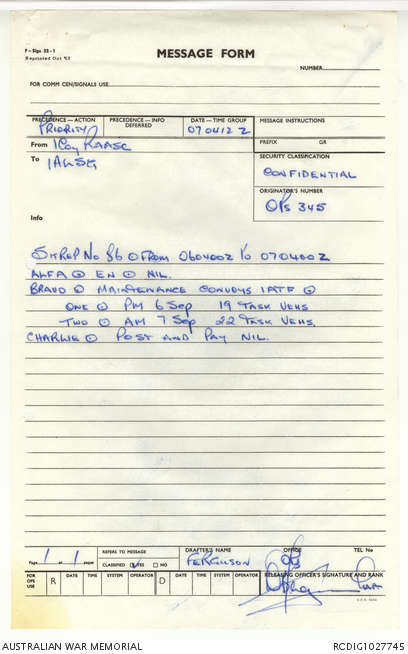 F-Sigs 32-1
Reprinted Oct 65
MESSAGE FORM
NUMBER
FOR COMM CEN/SIGNALS USE
PRECEDENCE—ACTION PRECEDENCE—INFO DATE—TIME GROUP MESSAGE INSTRUCTIONS
DEFERRED
PRIORITY 070412 Z
PREFIX GR
From 1 Coy RAASC
To 1 ALSG
SECURITY CLASSIFICATION
CONFIDENTIAL
ORIGINATOR'S NUMBER
OPS 345
Info
SITREP No 86 ⊙ FROM 060400Z TO 070400Z
ALFA ⊙ EN ⊙ NIL.
BRAVO ⊙ MAINTENANCE CONVOYS 1ATF ⊙
ONE ⊙ PM 6 Sep 19 TASK VEHS
TWO ⊙ AM 7 Sep 22 TASK VEHS.
CHARLIE ⊙ POST AND PAY NIL.
Page 1 of 1 pages
REFERS TO MESSAGE
CLASSIFIED YES NO
DRAFTER'S NAME OFFICE TEL No
FERGUSON
OPS
FOR OPS USE R DATE TIME SYSTEM OPERATOR D DATE TIME SYSTEM OPERATOR RELEASING OFFICER'S SIGNATURE AND RANK
AUSTRALIAN WAR MEMORIAL RCDIG1027745